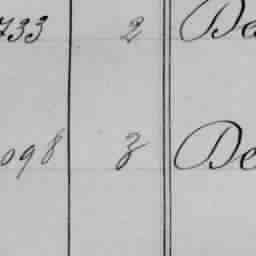 733 2 De
098 3 De